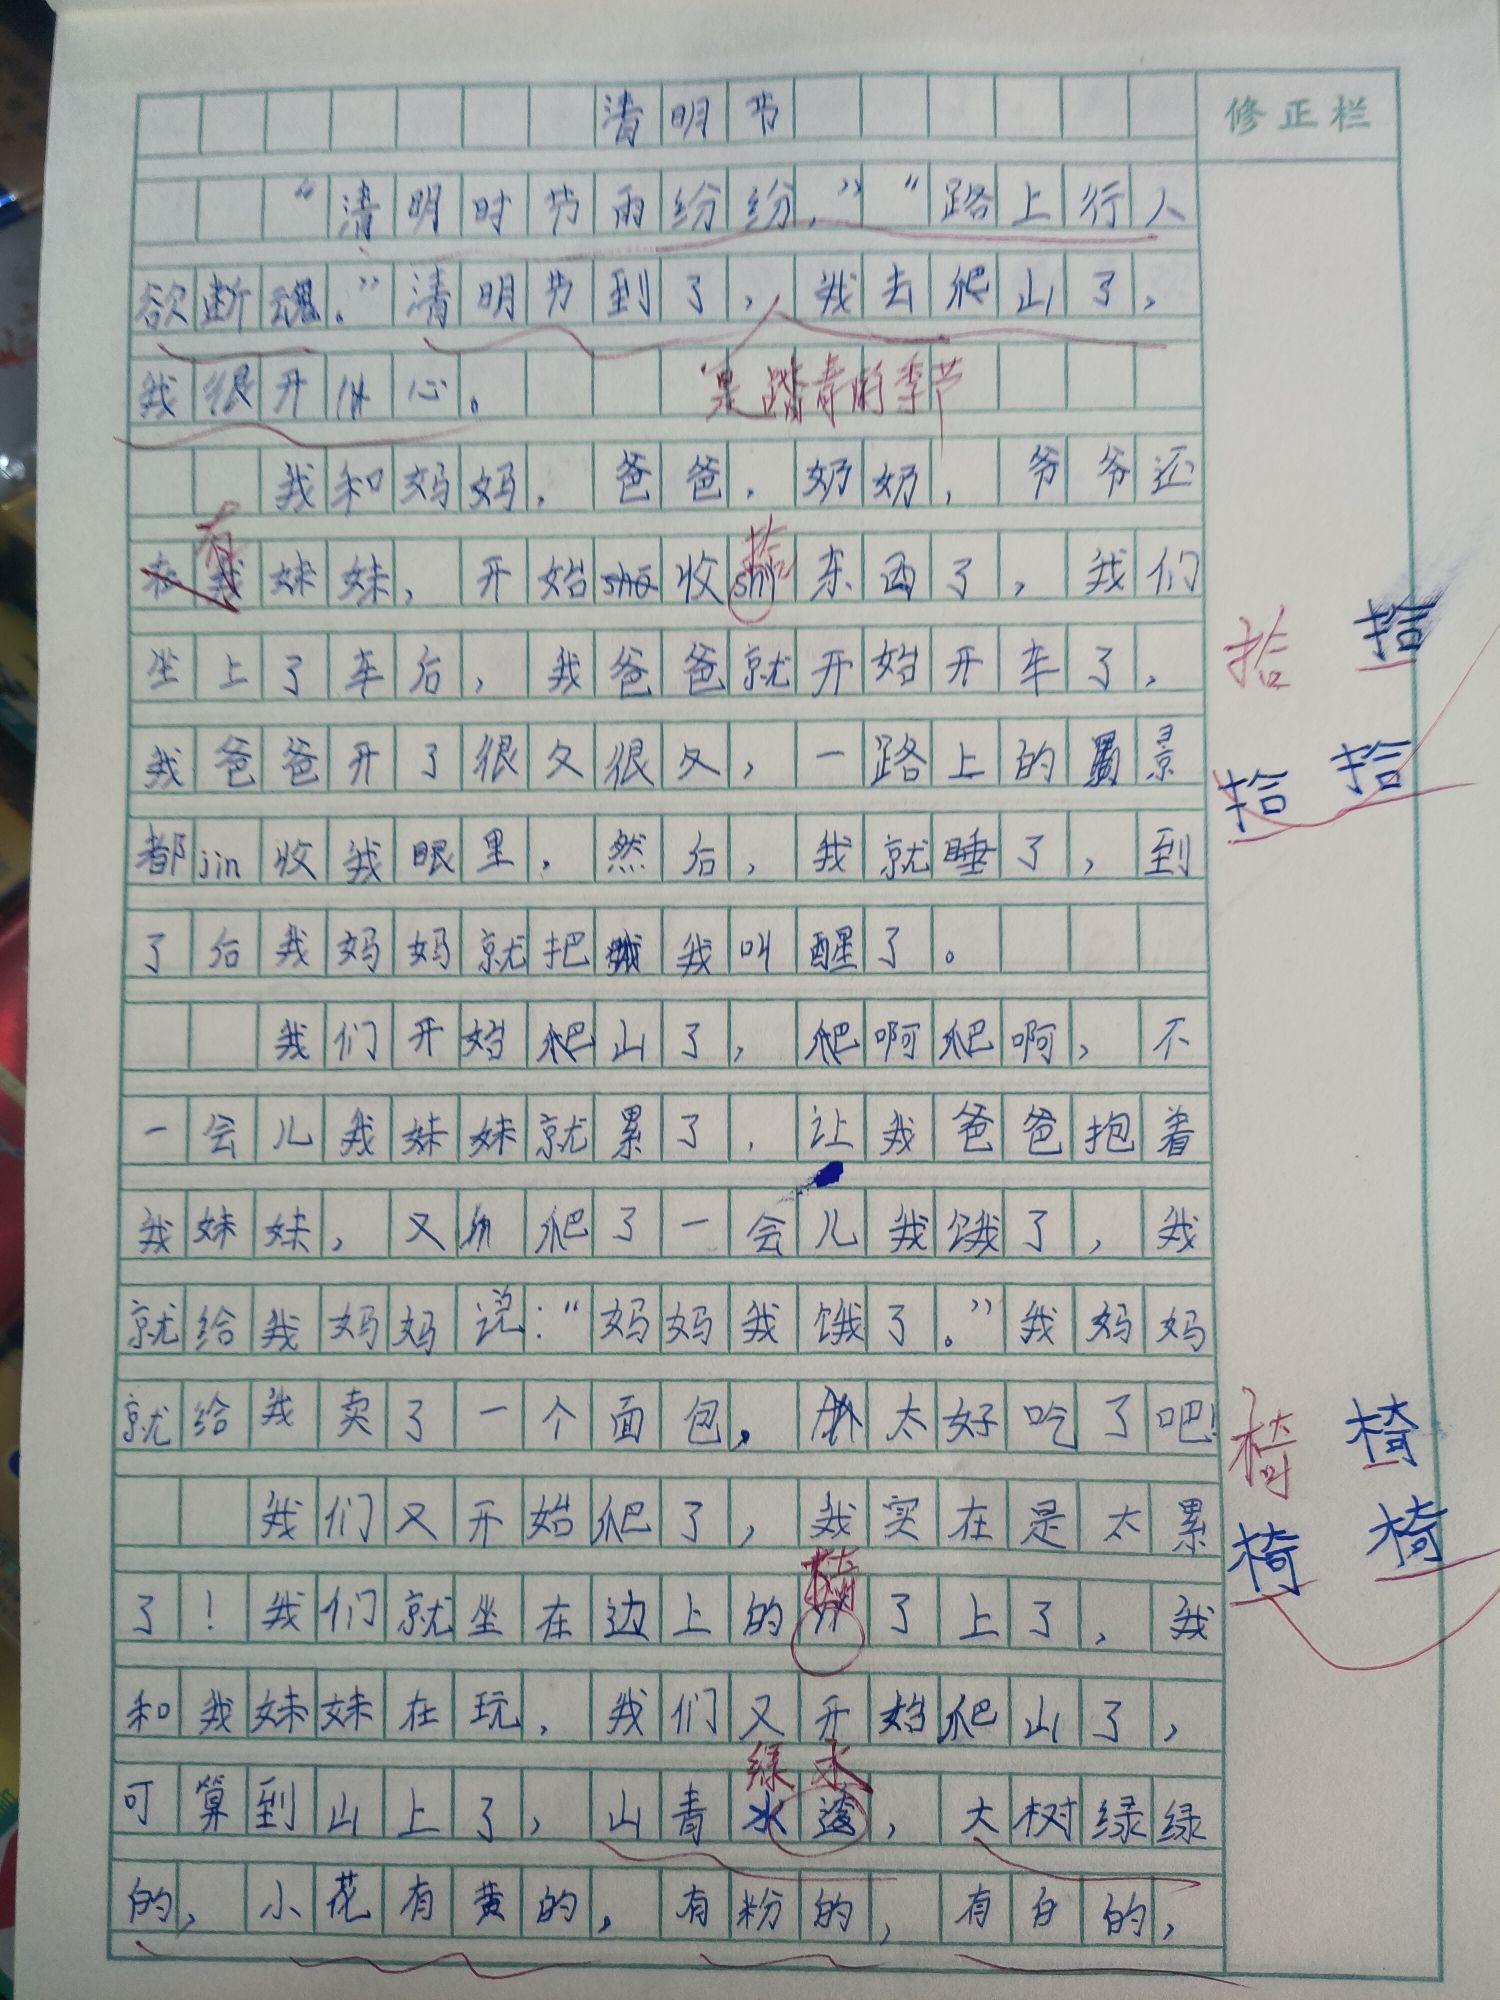 清明节
修正栏
“清明时节雨纷纷，”“路上行人
欲断魂。”清明节到了，我去爬山了，
我很开心。
是踏青的季节
我和妈妈，爸爸，奶奶，爷爷还
有
拾
和我妹妹，开始收shi东西了，我们
坐上了车后，我爸爸就开始开车了，
拾 拾
我爸爸开了很久很久，一路上的景
拾 拾
都jin收我眼里，然后，我就睡了，到
了后我妈妈就把我叫醒了。
我们开始爬山了，爬啊爬啊，不
一会儿我妹妹就累了，让我爸爸抱着
我妹妹，又爬了一会儿我饿了，我
就给我妈妈说：“妈妈我饿了。”我妈妈
就给我卖了一个面包，太好吃了吧！
椅 椅
我们又开始爬了，我实在是太累
椅 椅
椅
了！我们就坐在边上的yi了上了，我
和我妹妹在玩，我们又开始爬山了，
绿水
可算到山上了，山青水，大树绿绿
的，小花有黄的，有粉的，有白的，